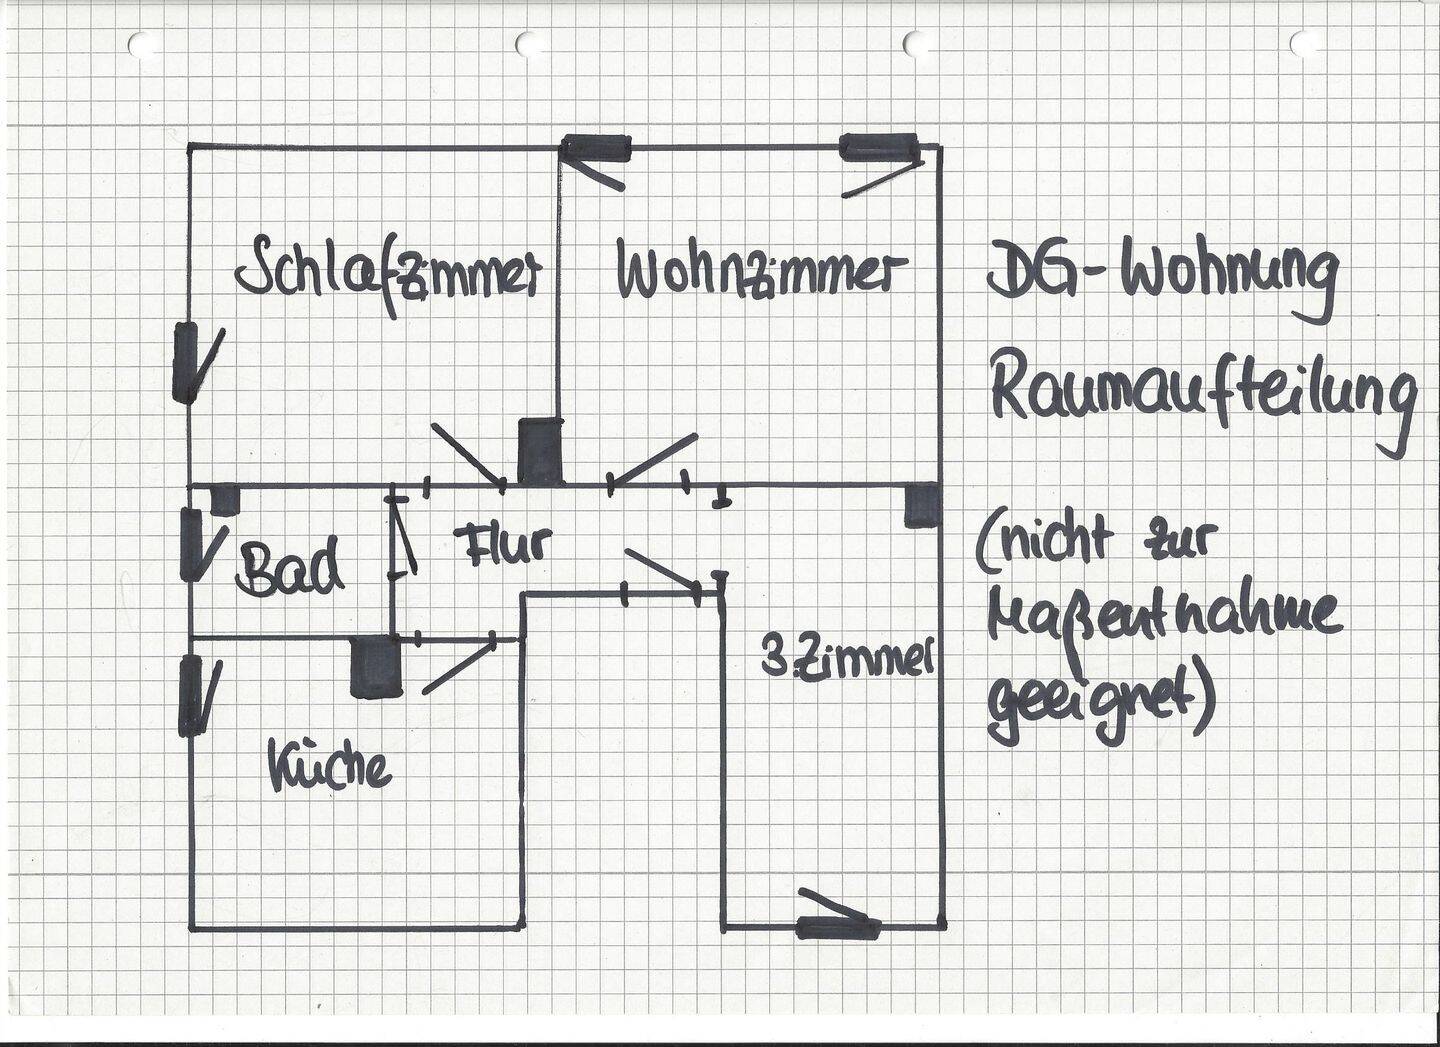 Schlafzimmer
Wohnzimmer
DG-Wohnung
Raumaufteilung
Bad
Flur
(nicht zur
Maßentnahme
geeignet)
3.Zimmer
Küche